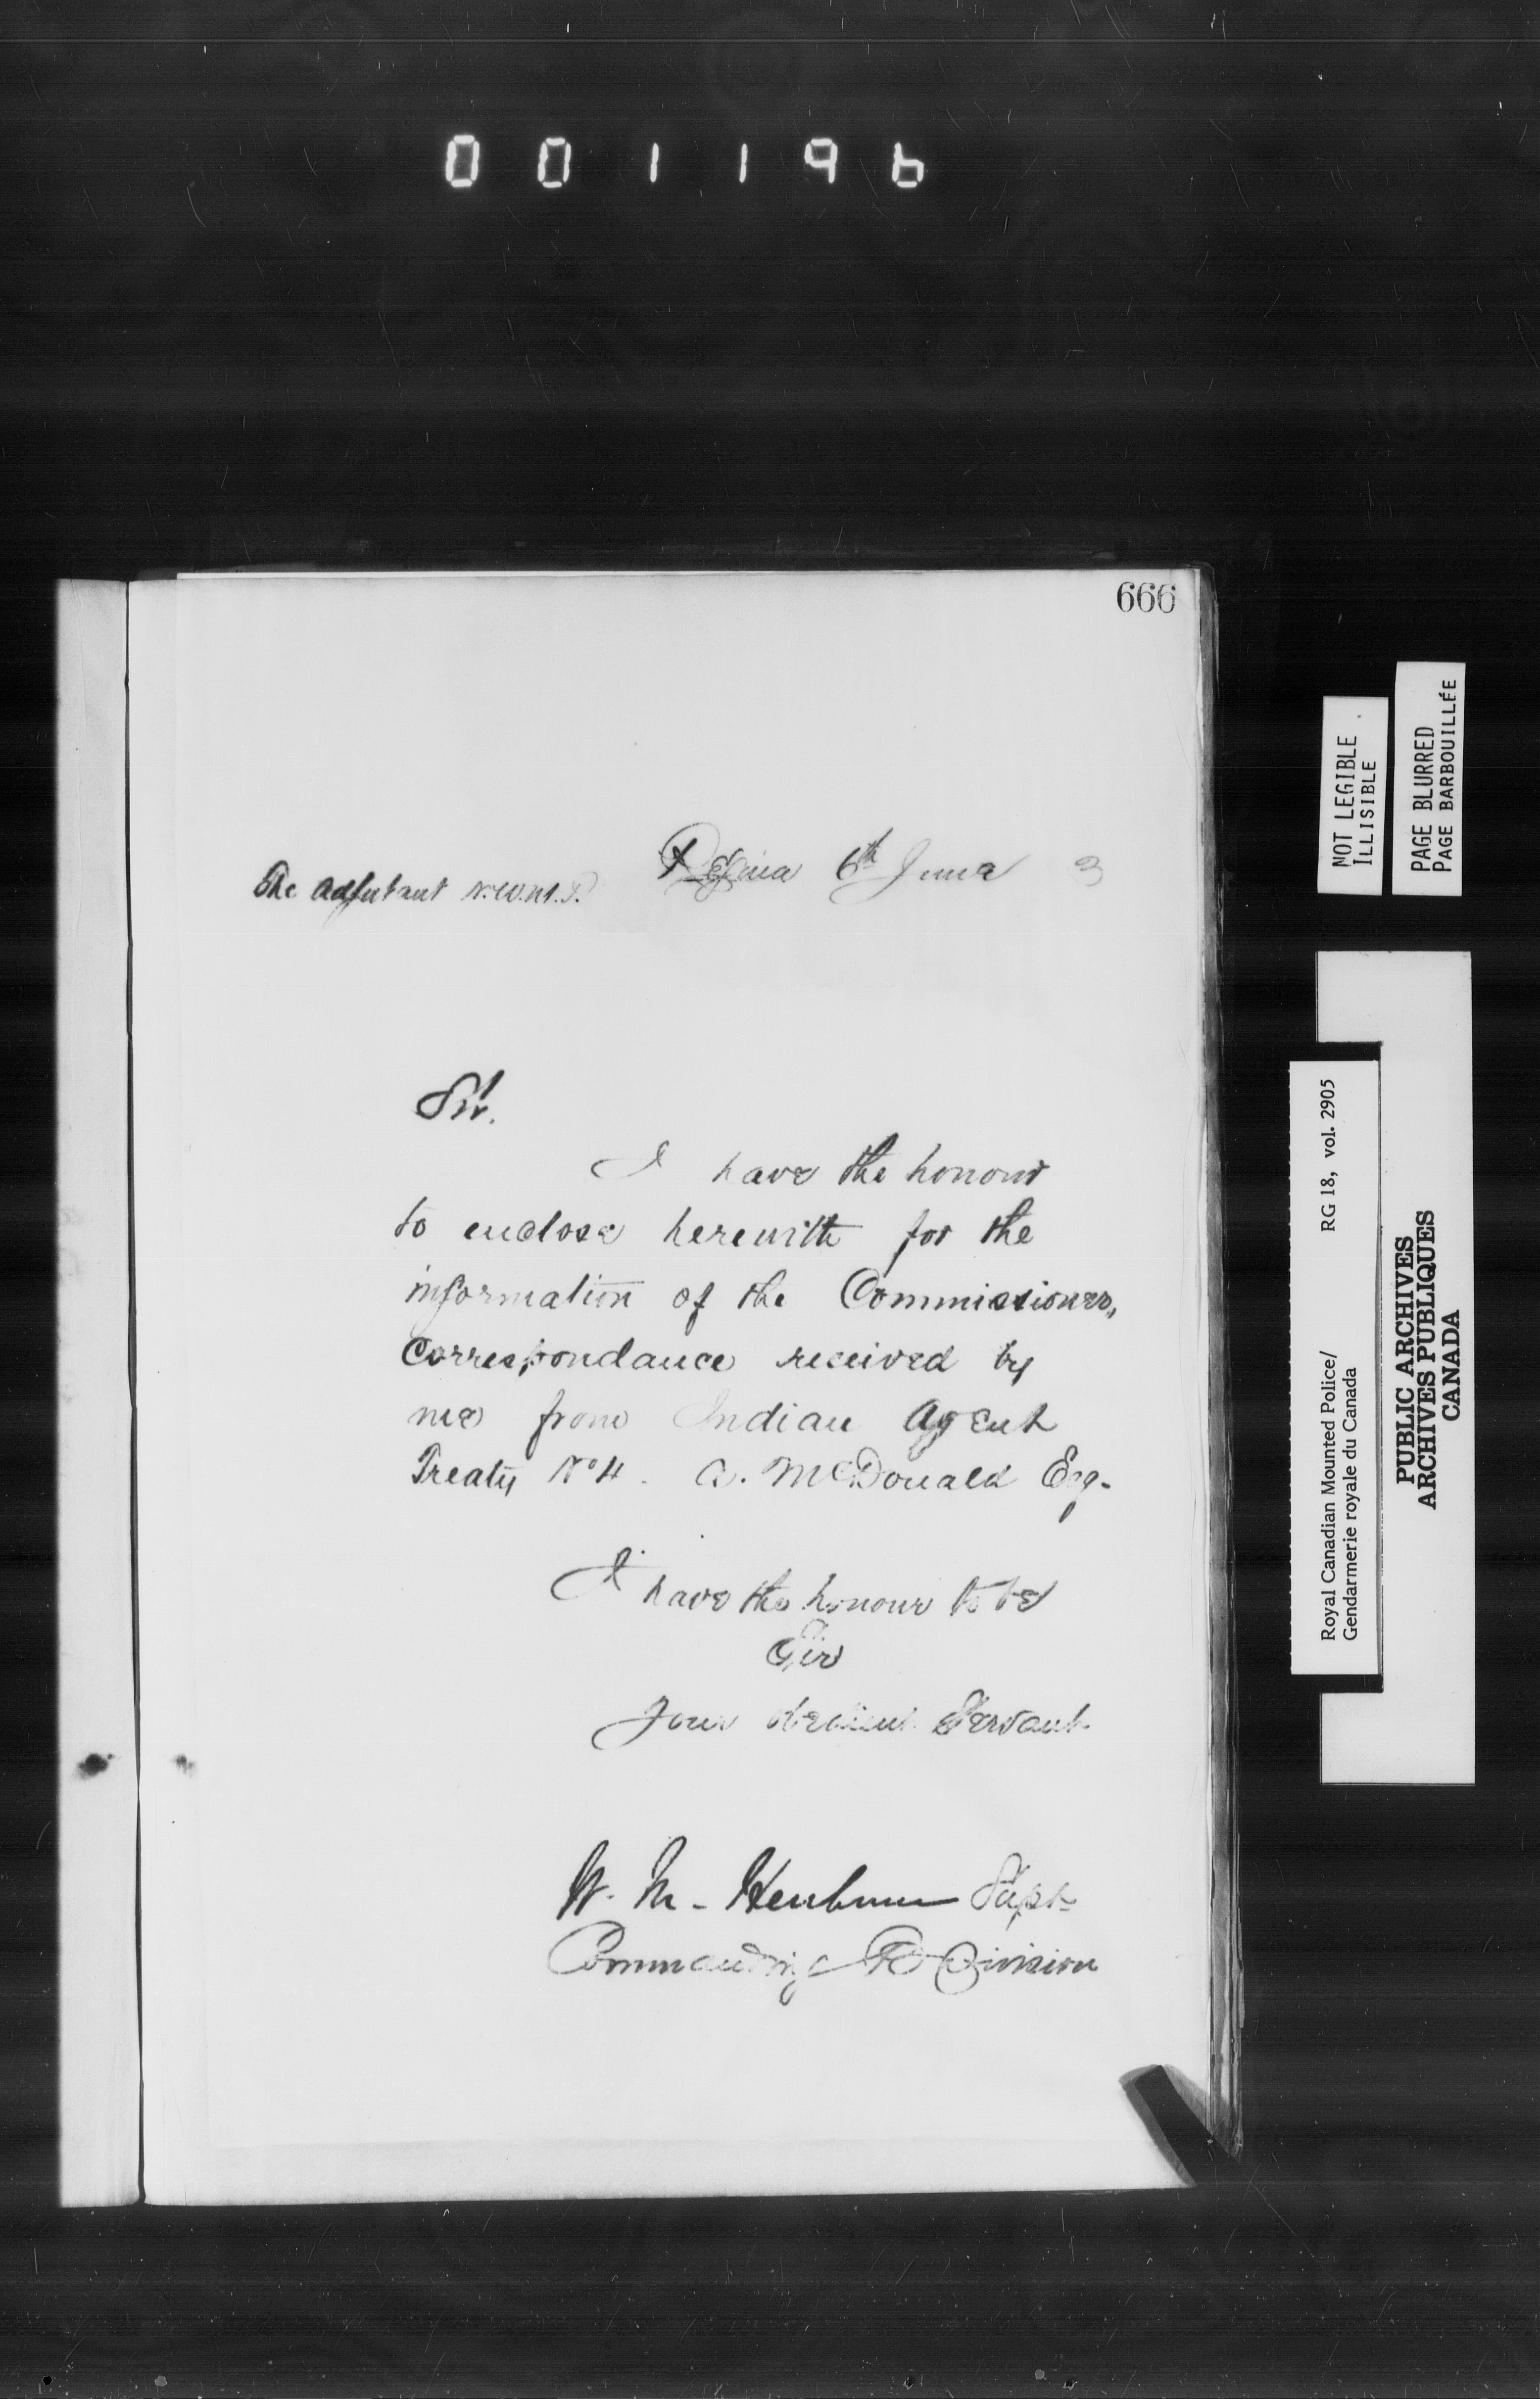 001196
666
Regina 6th June 3
The Adjutant N.W.M.P.
Sir.
I have the honour
to enclose herewith for the
information of the Commissioner,
Correspondance received by
me from Indian Agent
Treaty No 4. A. McDonald Esq.
I have the honour to be
Sir
Your obedient Servant
W. M. Herchmer Supt
Commanding Division
NOT LEGIBLE
ILLISIBLE
PAGE BLURRED
PAGE BARBOUILLÉE
Royal Canadian Mounted Police/ RG 18, vol. 2905
Gendarmerie royale du Canada
PUBLIC ARCHIVES
ARCHIVES PUBLIQUES
CANADA